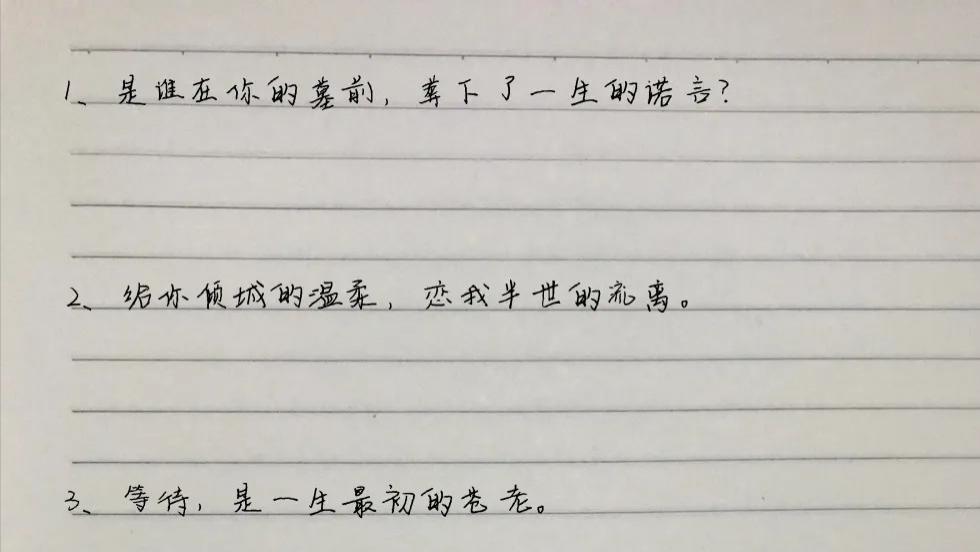 1、是谁在你的墓前，葬下了一生的诺言？
2、给你倾城的温柔，恋我半世的流离。
3、等待，是一生最初的苍老。